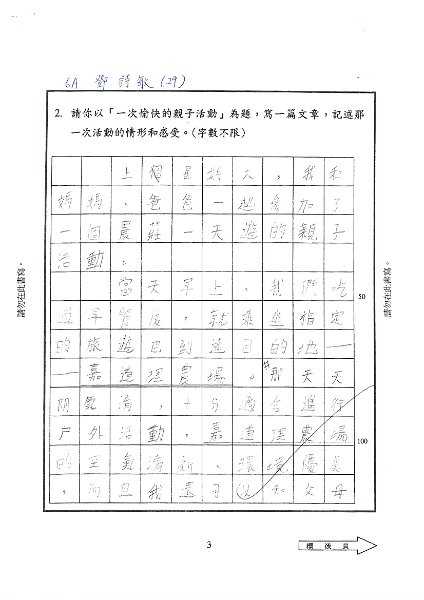 6A 鄧詩敏 (29)
2. 請你以「一次愉快的親子活動」為題，寫一篇文章，記述那
一次活動的情形和感受。(字數不限)
上個星期六，我和
媽媽、爸爸一起參加了
一個農莊一天遊的親子
活動。
當天早上，我們吃
過早餐後，就乘坐指定
的旅遊巴到達目的地—
—嘉道理農場。那天天
朗氣清，十分適合進行
戶外活動，嘉道理農場
的空氣清新，環境優美
，而且我還可以和父母
50
100
請勿在此書寫。
請勿在此書寫。
3
續後頁